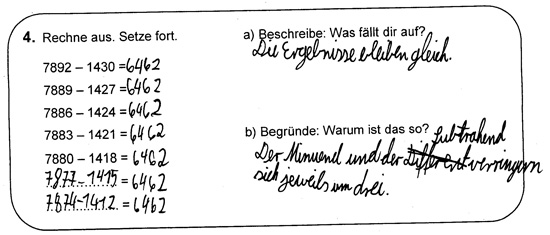 4. Rechne aus. Setze fort.
7892 – 1430 = 6462
7889 – 1427 = 6462
7886 – 1424 = 6462
7883 – 1421 = 6462
7880 – 1418 = 6462
7877-1415 = 6462
7874-1412 = 6462
a) Beschreibe: Was fällt dir auf?
Die Ergebnisse bleiben gleich.
b) Begründe: Warum ist das so?
Subtrahend
Der Minuend und der Different verringern
sich jeweils um drei.